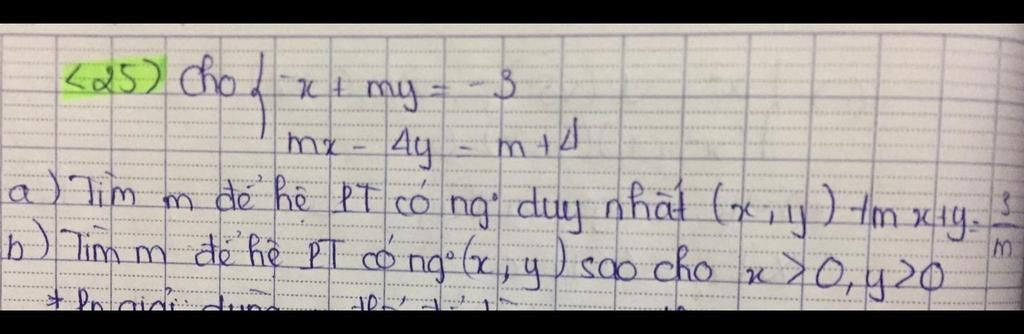 <25> Cho { -x + my = -3
mx - 4y = m + 4
a) Tìm m để hệ PT có ng⁰ duy nhất (x, y) tm x+y = 3/m
b) Tìm m để hệ PT có ng⁰ (x, y) sao cho x > 0, y > 0